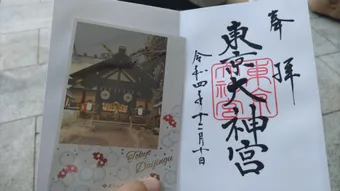 奉拝
東京大神宮
令和四年十二月十日
Tokyo
Daijingu